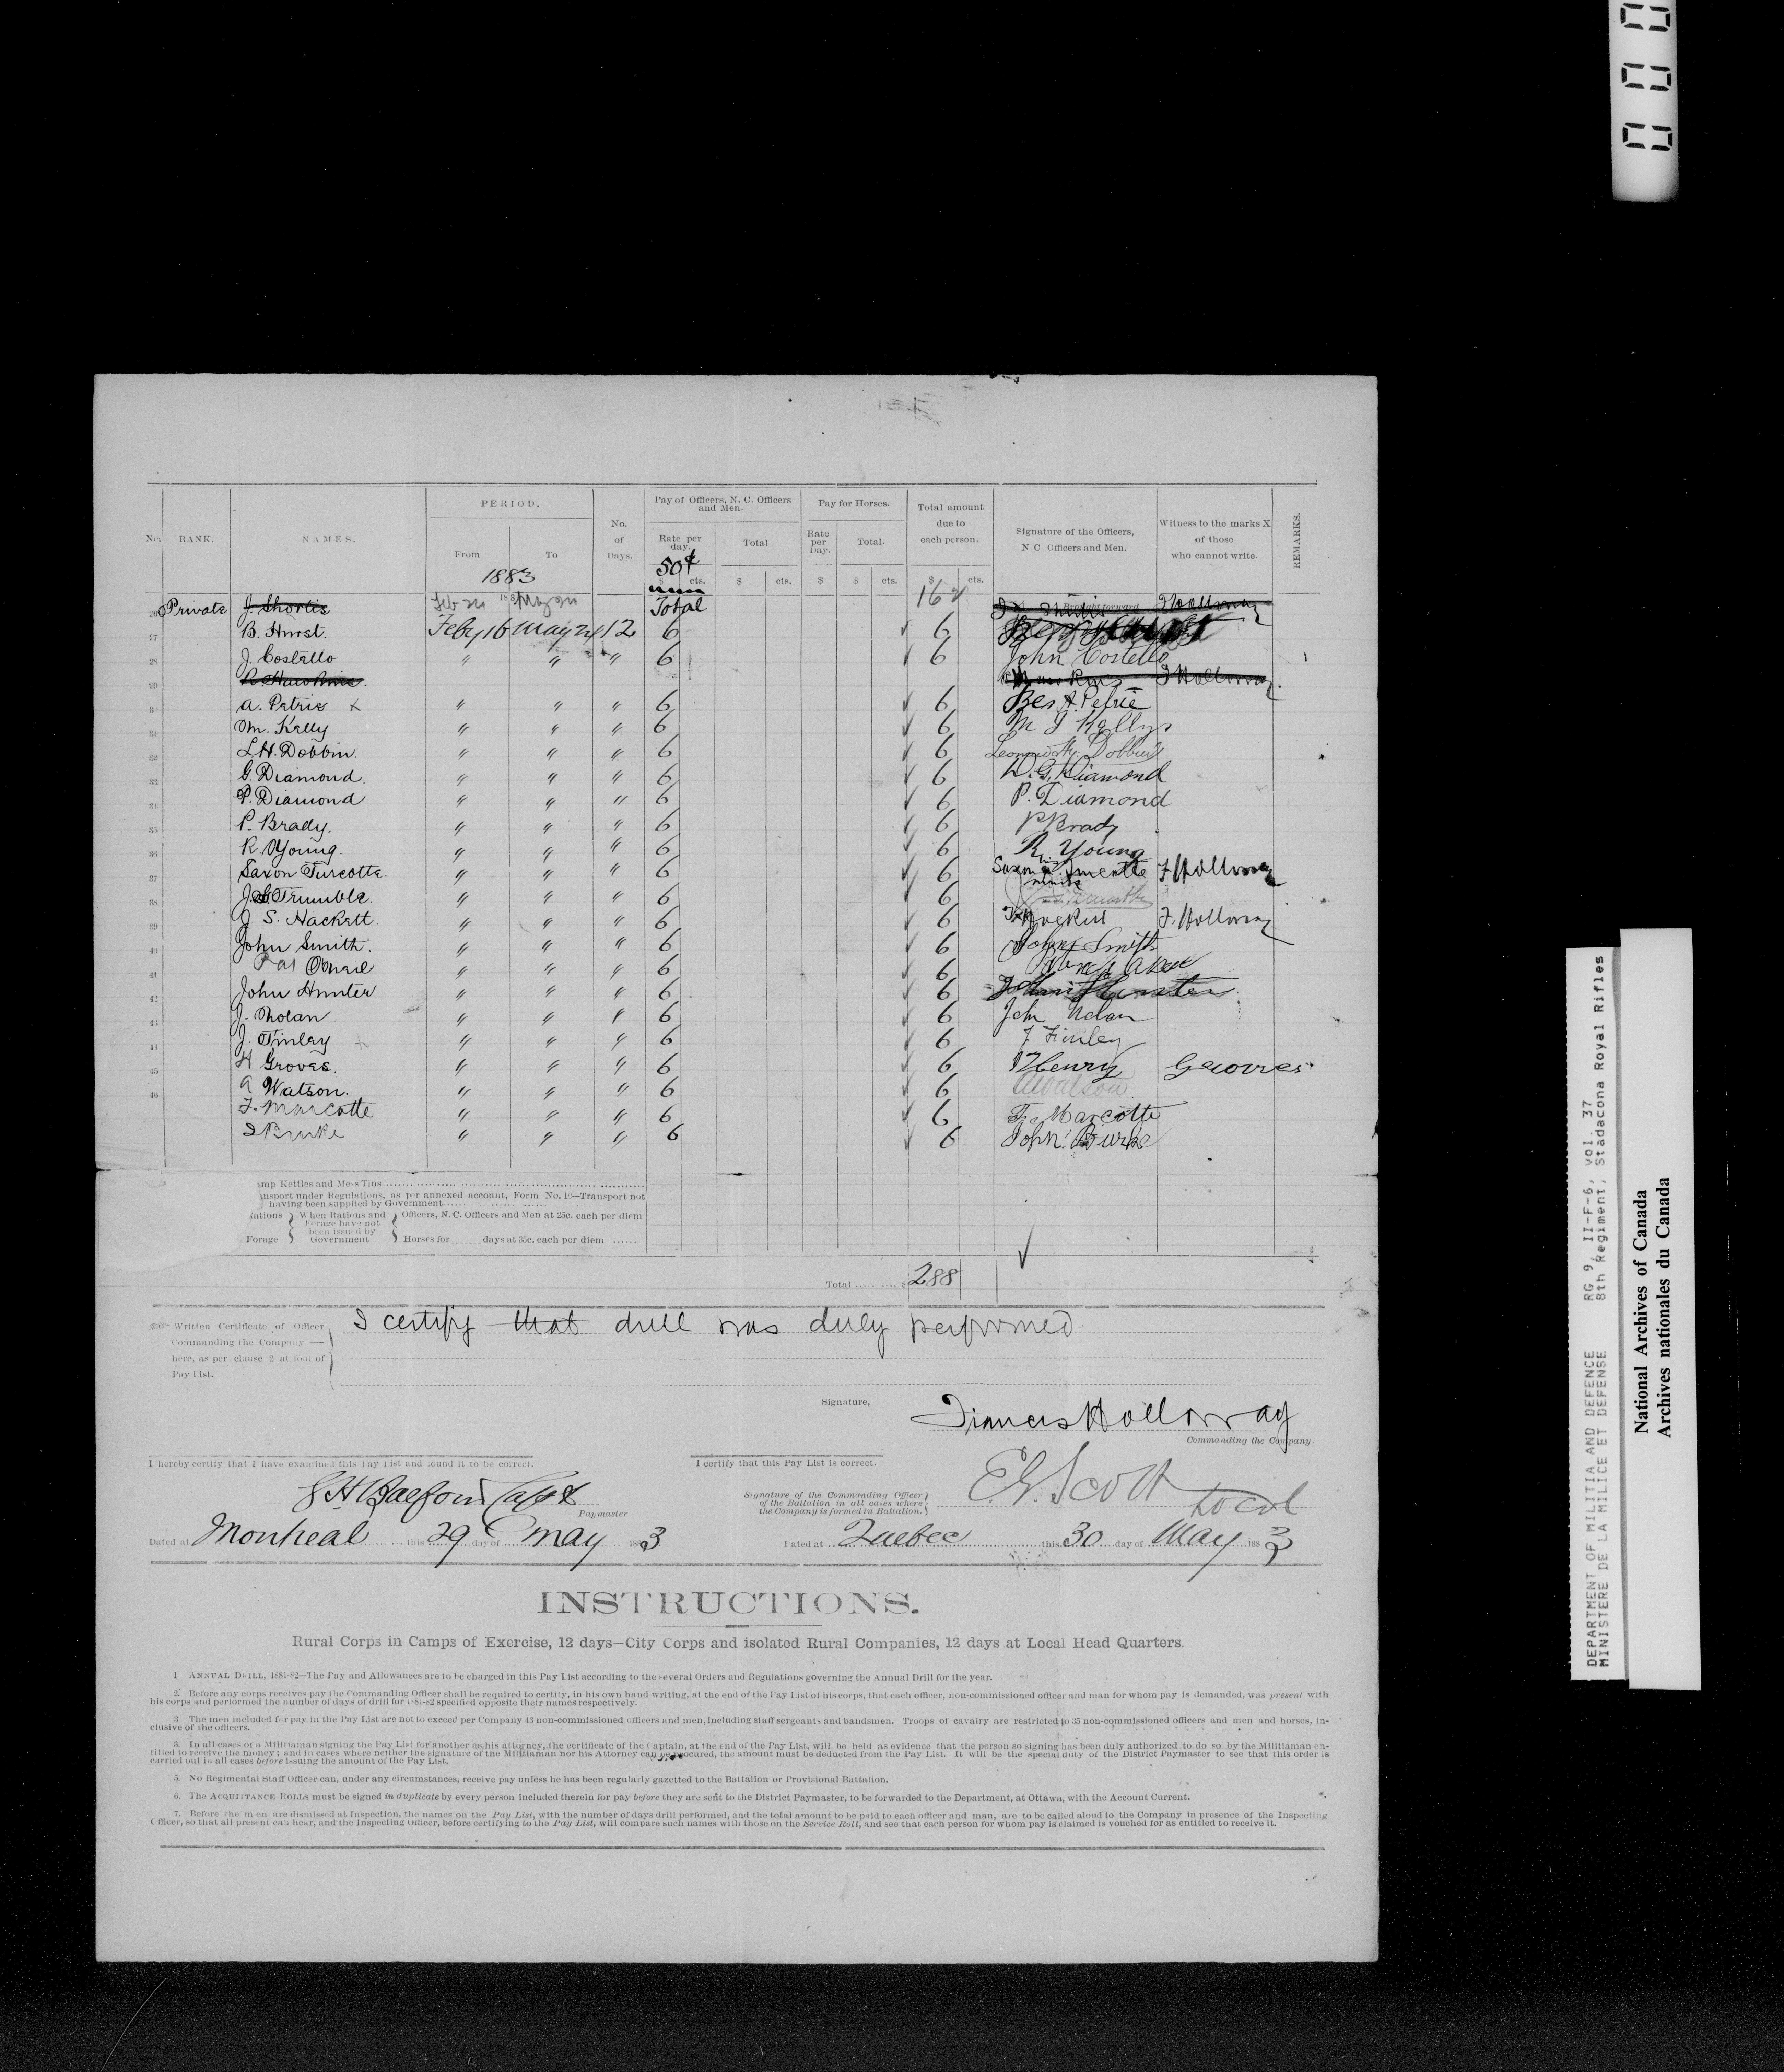 No. RANK. NAMES. PERIOD. No. of Days. Pay of Officers, N. C. Officers and Men. Pay for Horses. Total amount due to each person. Signature of the Officers, N. C. Officers and Men. Witness to the marks X of those who cannot write. REMARKS.
From To Rate per day. Total Rate per Day. Total.
1883 50¢ $ cts. $ cts. $ $ cts. $ cts.
Private J. Shortis Total 162 Brought forward
27 B. Hurst. Feby 16 May 24 12 6 6
28 J. Costello " " " 6 6 John Costello
29 F Holloway
A. Petrie x " " " 6 6 A. Petrie
M. Kelly " " " 6 6 M J Kelly
32 L.H. Dobbin. " " " 6 6
33 G. Diamond. " " " 6 6 W. G. Diamond
34 P. Diamond " " " 6 6 P. Diamond
35 P. Brady. " " " 6 6 P Brady
36 R. Young. " " " 6 6 R. Young
37 Saxon Turcotte. " " " 6 6 F Holloway
38 J. G. Trumble. " " " 6 6
39 J. S. Hackett " " " 6 6 F. Holloway
40 John Smith. " " " 6 6 John Smith
41 Pat " " " 6 6
42 John Hunter " " " 6 6 John Hunter
43 J. Nolan " " " 6 6 John Nolan
44 J. Finley " " " 6 6 J Finley
45 H Groves. " " " 6 6 Henry Groves
46 A Watson. " " " 6 6 A Watson
F. Marcotte " " " 6 6 F. Marcotte
J Burke " " " 6 6 John Burke
amp Kettles and Mess Tins
ansport under Regulations, as per annexed account, Form No. 10—Transport not
having been supplied by Government
ations } When Rations and Forage have not been issued by Government { Officers, N. C. Officers and Men at 25c. each per diem
Forage Horses for days at 35c. each per diem
Total $ 288
Written Certificate of Officer Commanding the Company — here, as per clause 2 at foot of Pay List.
I certify that drill was duly performed
Signature, Francis Holloway
Commanding the Company.
I hereby certify that I have examined this Pay List and found it to be correct.
I certify that this Pay List is correct.
Balfour Capt
Paymaster
Signature of the Commanding Officer of the Battalion in all cases where the Company is formed in Battalion.
Scott Lt Col
Dated at Montreal this 29 day of May 1883
Dated at Quebec this 30 day of May 1883
INSTRUCTIONS.
Rural Corps in Camps of Exercise, 12 days—City Corps and isolated Rural Companies, 12 days at Local Head Quarters.
1 ANNUAL DRILL, 1881-82—The Pay and Allowances are to be charged in this Pay List according to the several Orders and Regulations governing the Annual Drill for the year.
2. Before any corps receives pay the Commanding Officer shall be required to certify, in his own hand writing, at the end of the Pay List of his corps, that each officer, non-commissioned officer and man for whom pay is demanded, was present with
his corps and performed the number of days of drill for 1881-82 specified opposite their names respectively.
3 The men included for pay in the Pay List are not to exceed per Company 45 non-commissioned officers and men, including staff sergeants and bandsmen. Troops of cavalry are restricted to 35 non-commissioned officers and men and horses, in-
clusive of the officers.
3. In all cases of a Militiaman signing the Pay List for another as his attorney, the certificate of the Captain, at the end of the Pay List, will be held as evidence that the person so signing has been duly authorized to do so by the Militiaman en-
titled to receive the money; and in cases where neither the signature of the Militiaman nor his Attorney can be procured, the amount must be deducted from the Pay List. It will be the special duty of the District Paymaster to see that this order is
carried out in all cases before issuing the amount of the Pay List.
5. No Regimental Staff Officer can, under any circumstances, receive pay unless he has been regularly gazetted to the Battalion or Provisional Battalion.
6. The ACQUITTANCE ROLLS must be signed in duplicate by every person included therein for pay before they are sent to the District Paymaster, to be forwarded to the Department, at Ottawa, with the Account Current.
7. Before the men are dismissed at Inspection, the names on the Pay List, with the number of days drill performed, and the total amount to be paid to each officer and man, are to be called aloud to the Company in presence of the Inspecting
Officer, so that all present can hear, and the Inspecting Officer, before certifying to the Pay List, will compare such names with those on the Service Roll, and see that each person for whom pay is claimed is vouched for as entitled to receive it.
DEPARTMENT OF MILITIA AND DEFENCE RG 9, II-F-6, vol. 37
MINISTERE DE LA MILICE ET DEFENSE 8th Regiment, Stadacona Royal Rifles
National Archives of Canada
Archives nationales du Canada